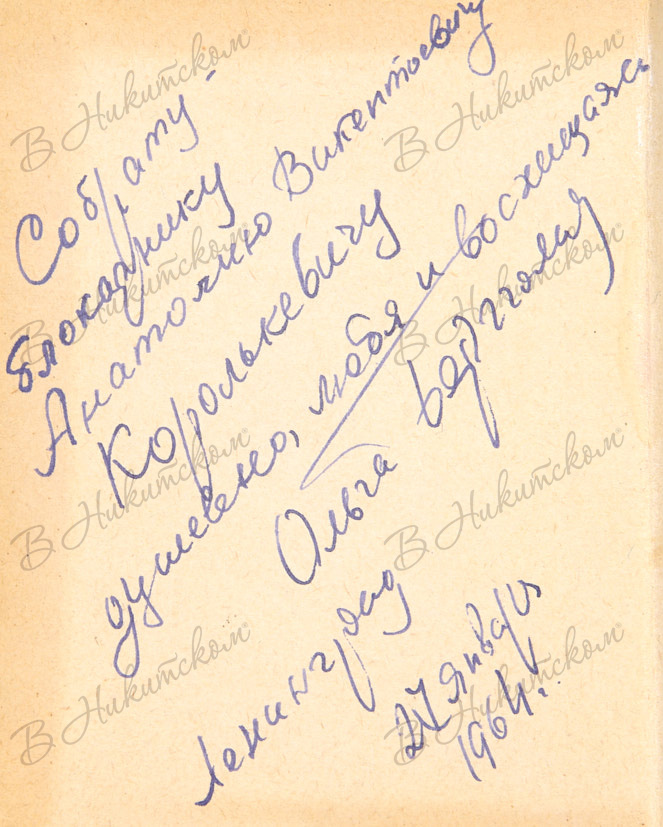 Собрату-
блокаднику
Анатолию Викентьевичу
Королькевичу
душевно, любя и восхищаясь
Ольга Берггольц
Ленинград
27 января
1964.
В Никитском
В Никитском
В Никитском
В Никитском
В Никитском
В Никитском
В Никитском
В Никитском